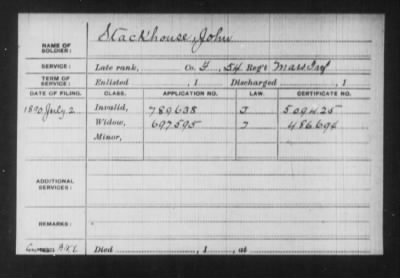 Stackhouse, John
NAME OF SOLDIER:
SERVICE: Late rank, Co. F, 54 Reg't Mass Inf
TERM OF SERVICE: Enlisted , 1 Discharged , 1
DATE OF FILING. CLASS. APPLICATION NO. LAW. CERTIFICATE NO.
1890 July 2 Invalid, 789638 J 509425
Widow, 697595 J 486694
Minor,
ADDITIONAL SERVICES:
REMARKS:
Died , 1 , at